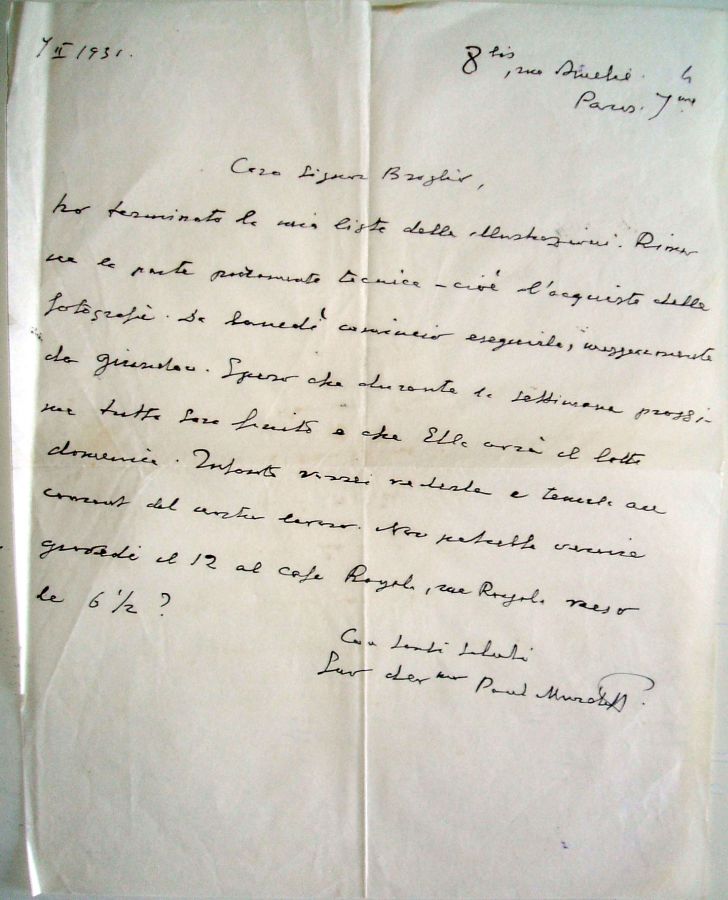 7 II 1931.
8 bis, rue Amélie.
Paris. 7me
Caro Signor Broglio,
ho terminato la mia lista delle illustrazioni. Rimar
ne la parte puramente tecnica – cioè l'acquisto delle
fotografie. Da lunedì comincio eseguirla,
da giovedì. Spero che durante la settimana prossi-
ma tutto sarà finito e che Ella avrà il tutto
domenica. Intanto vorrei vederla e tenerla au
courant del nostro lavoro. Non potrebbe venire
giovedì il 12 al café Royal, rue Royale verso
le 6 1/2 ?
Con tanti saluti
Suo dev mo Paul Muratoff.